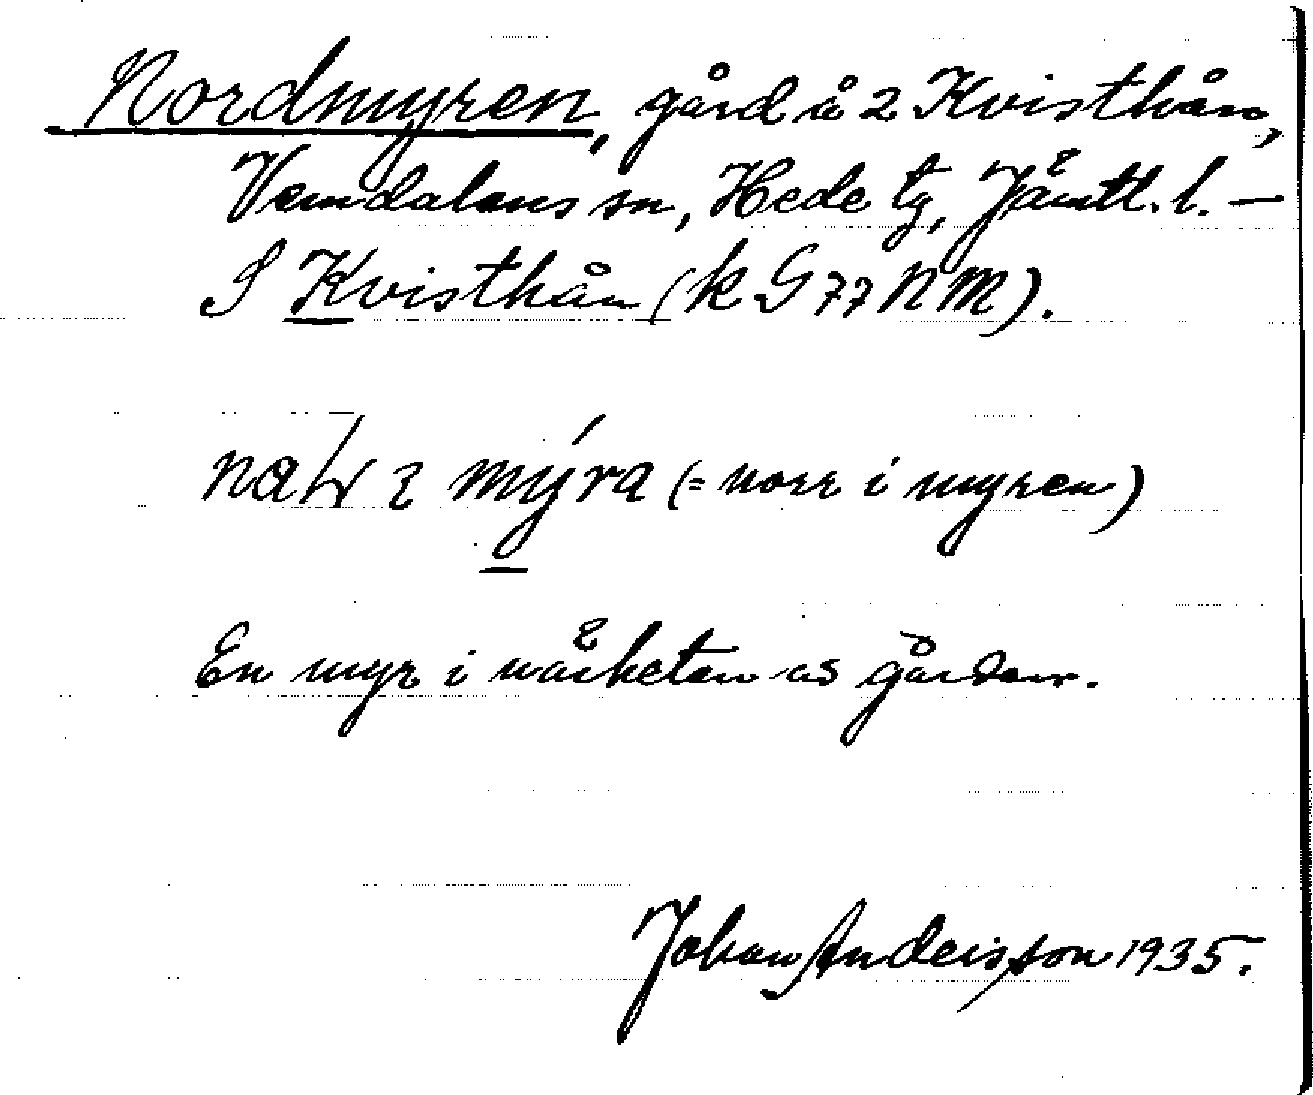 Nordmyren, gård å 2 Kvisthån,
Vemdalens sn, Hede tg, Jämtl. l. —
S Kvisthån (k G 77 N M).
mýra (= norr i myren)
En myr i närheten av gården.
Johan Andersson 1935.